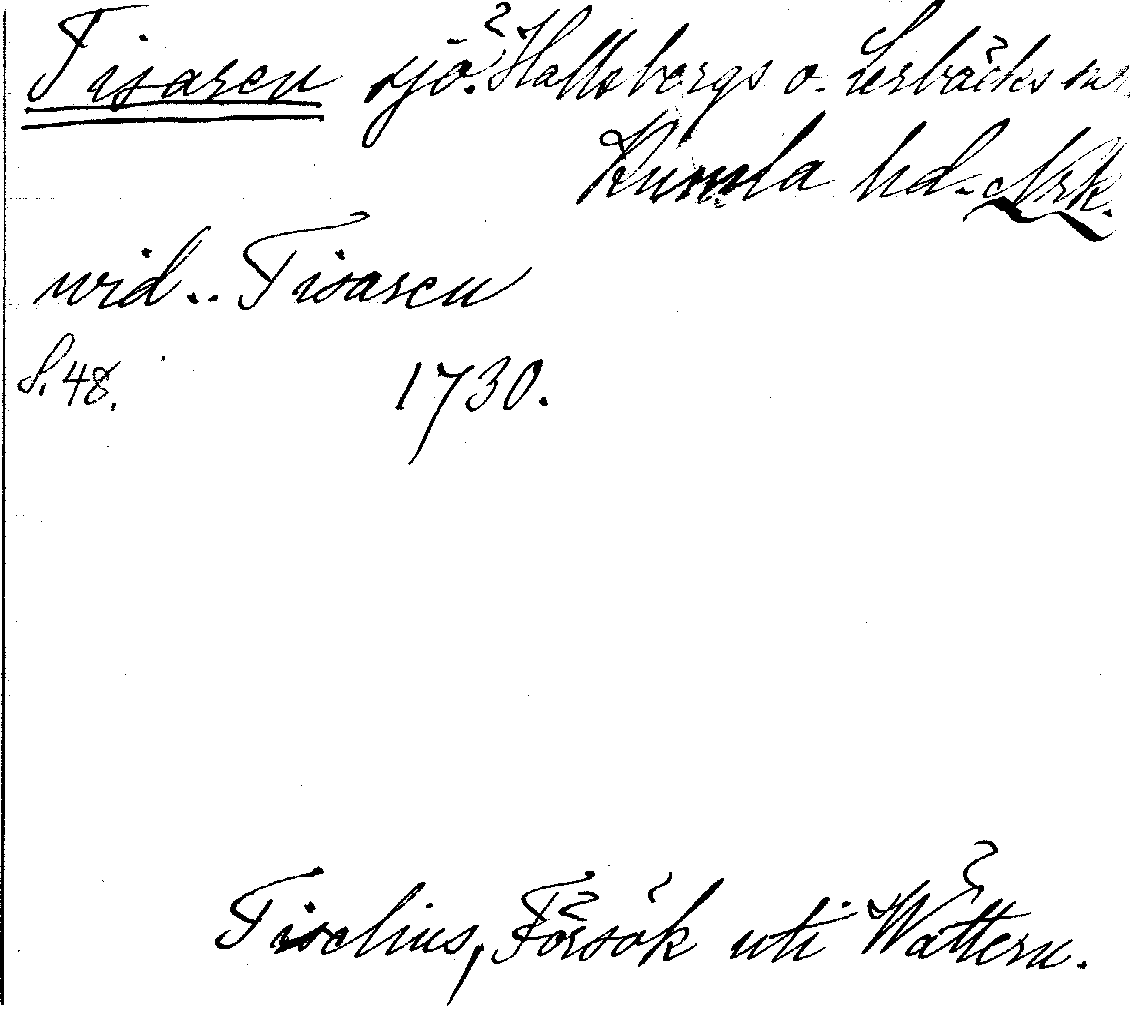 Tisaren sjö. Hallsbergs o. Lerbäcks snr
Kumla hd. Nrk.
wid .. Tisaren
S. 48. 1730.
Tiselius, Försök uti Wättern.